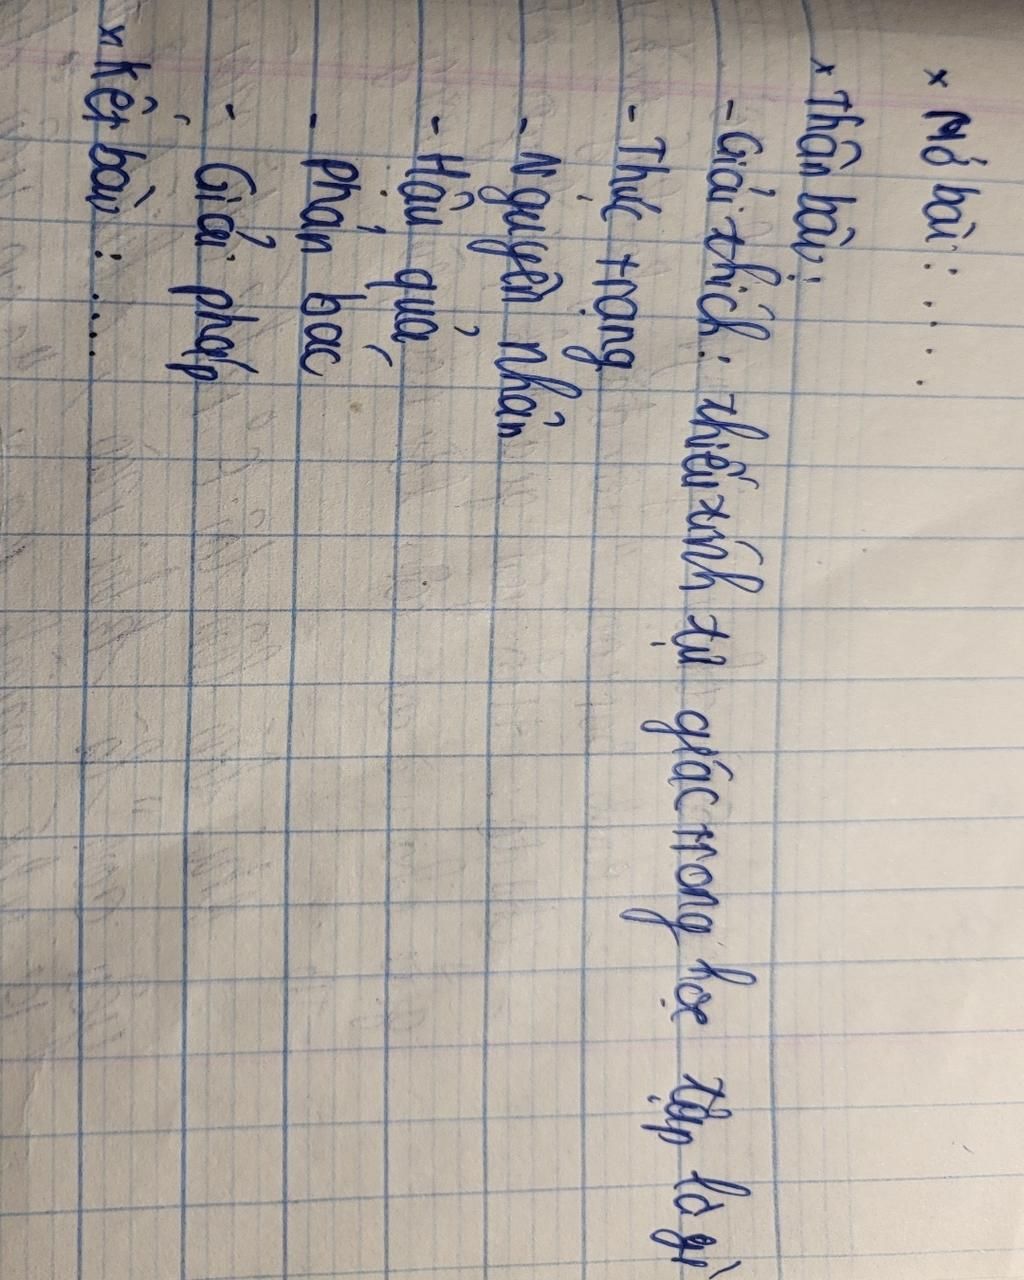 x Mở bài : . . . .
x Thân bài :
- Giải thích : thiếu tính tự giác trong học tập là gì
- Thực trạng
- Nguyên nhân
- Hậu quả
- phản bác
- Giải pháp
x Kết bài : . . . .